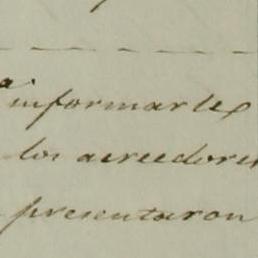 a
informarles
los acreedores
presentaron